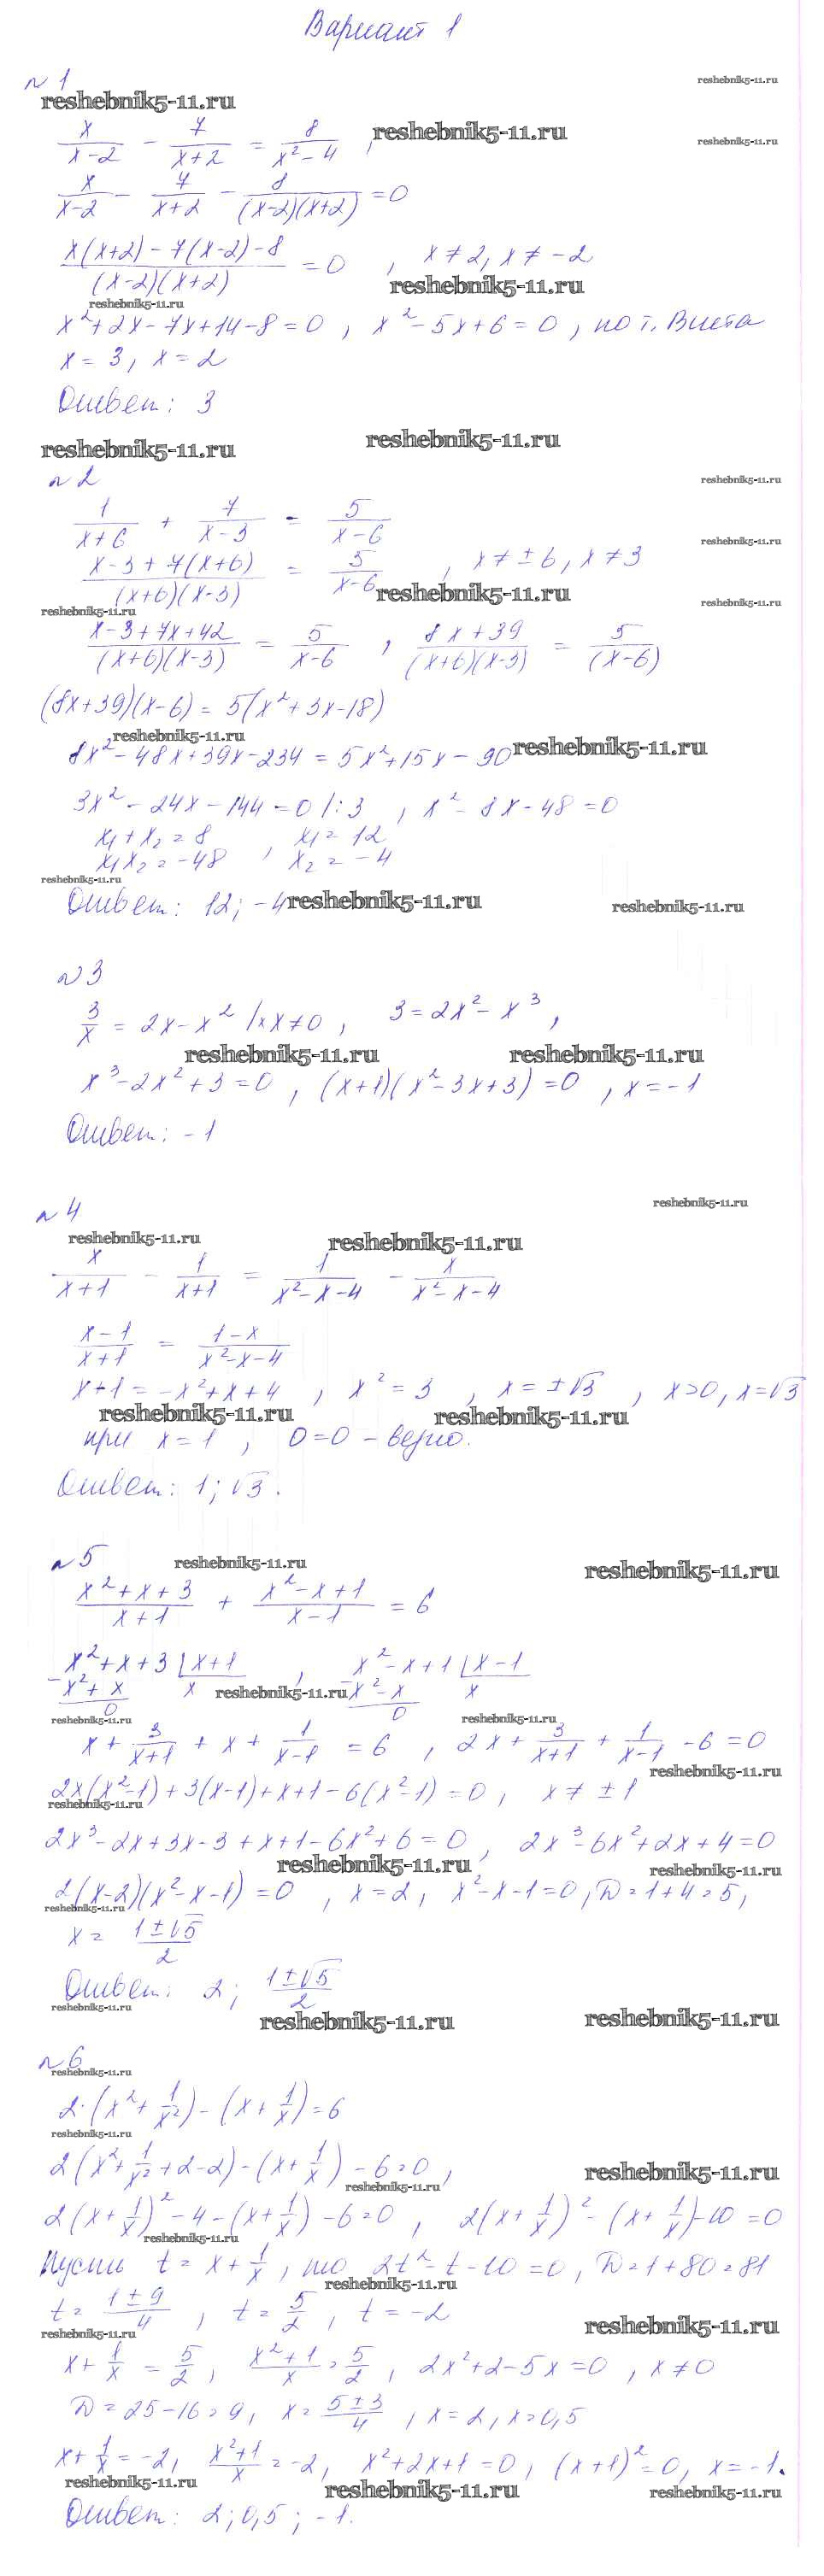 Вариант 1
reshebnik5-11.ru
№ 1
reshebnik5-11.ru
x/(x-2) - 7/(x+2) = 8/(x²-4) , reshebnik5-11.ru reshebnik5-11.ru
x/(x-2) - 7/(x+2) - 8/((x-2)(x+2)) = 0
(x(x+2) - 7(x-2) - 8)/((x-2)(x+2)) = 0 , x ≠ 2, x ≠ -2
reshebnik5-11.ru
reshebnik5-11.ru
x² + 2x - 7x + 14 - 8 = 0 , x² - 5x + 6 = 0 , по т. Виета
x = 3, x = 2
Ответ: 3
reshebnik5-11.ru reshebnik5-11.ru
№ 2 reshebnik5-11.ru
1/(x+6) + 7/(x-3) = 5/(x-6)
reshebnik5-11.ru
(x-3+7(x+6))/((x+6)(x-3)) = 5/(x-6) , x ≠ ±6, x ≠ 3
reshebnik5-11.ru
reshebnik5-11.ru reshebnik5-11.ru
(x-3+7x+42)/((x+6)(x-3)) = 5/(x-6) , (8x+39)/((x+6)(x-3)) = 5/(x-6)
(8x+39)(x-6) = 5(x²+3x-18)
reshebnik5-11.ru
8x² - 48x + 39x - 234 = 5x² + 15x - 90 reshebnik5-11.ru
3x² - 24x - 144 = 0 /:3 , x² - 8x - 48 = 0
x₁ + x₂ = 8 , x₁ = 12
x₁x₂ = -48 , x₂ = -4
reshebnik5-11.ru
Ответ: 12; -4 reshebnik5-11.ru reshebnik5-11.ru
№ 3
3/x = 2x - x² /·x x≠0 , 3 = 2x² - x³ ,
reshebnik5-11.ru reshebnik5-11.ru
x³ - 2x² + 3 = 0 , (x+1)(x²-3x+3) = 0 , x = -1
Ответ: -1
reshebnik5-11.ru
№ 4
reshebnik5-11.ru reshebnik5-11.ru
x/(x+1) - 1/(x+1) = 1/(x²-x-4) - x/(x²-x-4)
(x-1)/(x+1) = (1-x)/(x²-x-4)
x+1 = -x²+x+4 , x² = 3 , x = ±√3 , x>0, x=√3
reshebnik5-11.ru reshebnik5-11.ru
при x = 1 , 0=0 - верно.
Ответ: 1; √3.
№ 5 reshebnik5-11.ru reshebnik5-11.ru
(x²+x+3)/(x+1) + (x²-x+1)/(x-1) = 6
x²+x+3 | x+1 , x²-x+1 | x-1
- x²+x x reshebnik5-11.ru - x²-x x
0 0
reshebnik5-11.ru reshebnik5-11.ru
x + 3/(x+1) + x + 1/(x-1) = 6 , 2x + 3/(x+1) + 1/(x-1) - 6 = 0
reshebnik5-11.ru
2x(x²-1) + 3(x-1) + x+1 - 6(x²-1) = 0 , x ≠ ±1
reshebnik5-11.ru
2x³ - 2x + 3x - 3 + x + 1 - 6x² + 6 = 0 , 2x³ - 6x² + 2x + 4 = 0
reshebnik5-11.ru reshebnik5-11.ru
2(x-2)(x²-x-1) = 0 , x = 2, x²-x-1 = 0, D = 1+4 = 5,
reshebnik5-11.ru
x = (1±√5)/2
Ответ: 2; (1±√5)/2
reshebnik5-11.ru
reshebnik5-11.ru reshebnik5-11.ru
№ 6
reshebnik5-11.ru
2·(x² + 1/x²) - (x + 1/x) = 6
reshebnik5-11.ru
2(x² + 1/x² + 2 - 2) - (x + 1/x) - 6 = 0 ,
reshebnik5-11.ru
reshebnik5-11.ru
2(x + 1/x)² - 4 - (x + 1/x) - 6 = 0 , 2(x + 1/x)² - (x + 1/x) - 10 = 0
reshebnik5-11.ru
Пусть t = x + 1/x , то 2t² - t - 10 = 0 , D = 1+80 = 81
reshebnik5-11.ru
t = (1±9)/4 , t = 5/2 , t = -2
reshebnik5-11.ru
reshebnik5-11.ru
x + 1/x = 5/2 , (x²+1)/x = 5/2 , 2x² + 2 - 5x = 0 , x ≠ 0
D = 25-16 = 9, x = (5±3)/4 , x = 2, x = 0,5
x + 1/x = -2, (x²+1)/x = -2, x² + 2x + 1 = 0 , (x+1)² = 0, x = -1.
reshebnik5-11.ru reshebnik5-11.ru reshebnik5-11.ru
Ответ: 2; 0,5; -1.